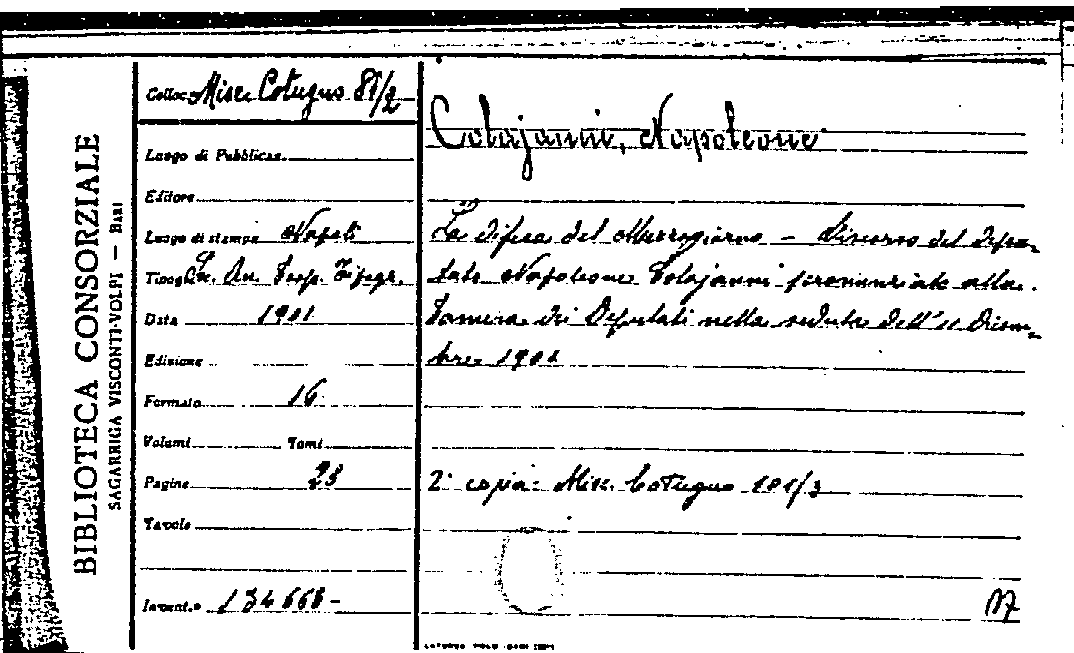 BIBLIOTECA CONSORZIALE
SAGARRIGA VISCONTI-VOLPI — BARI
Colloc. Misc. Cotugno 81/2
Luogo di Pubblicaz.
Editore
Luogo di stampa Napoli
Tipogr. So. An. Coop. Tipogr.
Data 1901
Edizione
Formato 16
Volumi Tomi
Pagine 23
Tavole
Invent.o
Colajanni, Napoleone
La difesa del Mezzogiorno – Discorso del depu-
tato Napoleone Colajanni pronunziato alla
Camera dei Deputati nella seduta dell'11 Dicem-
bre 1901
2ª copia: Misc. Cotugno 101/3